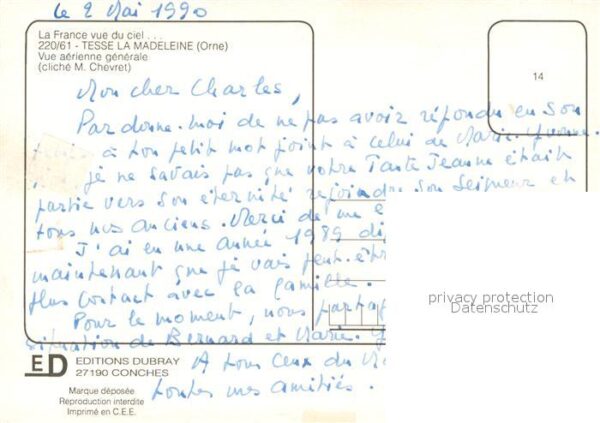 le 2 Mai 1990
La France vue du ciel . . .
220/61 - TESSE LA MADELEINE (Orne)
Vue aérienne générale
(cliché M. Chevret)
14
Mon cher Charles,
Pardonne-moi de ne pas avoir répondu en son
temps à ton petit mot joint à celui de Marie-Yvonne.
je ne savais pas que votre Tante Jeanne était
partie vers son éternité rejoindre son Seigneur et
tous nos anciens. Merci de me
J'ai eu une année 1989
maintenant que je vais peut-être
plus contact avec la famille.
Pour le moment, nous
situation de Bernard et Marie.
A tous ceux du
toutes mes amitiés.
privacy protection
Datenschutz
ED
EDITIONS DUBRAY
27190 CONCHES
Marque déposée
Reproduction interdite
Imprimé en C.E.E.